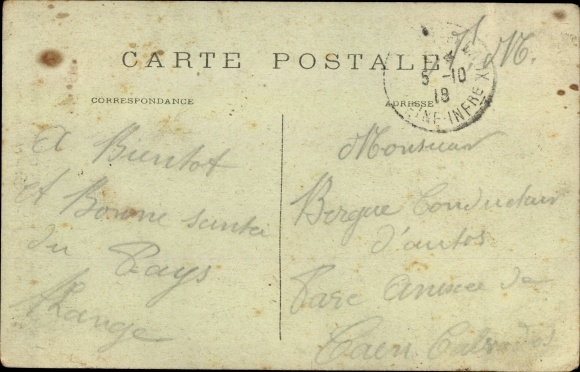 CARTE POSTALE
F. M.
5-10
18
SEINE-INFRE
CORRESPONDANCE
ADRESSE
A Bientot
et Bonne santé
du Pays
Monsieur
Bergue Conducteur
d'autos
Parc Annexe de
Caen Calvados